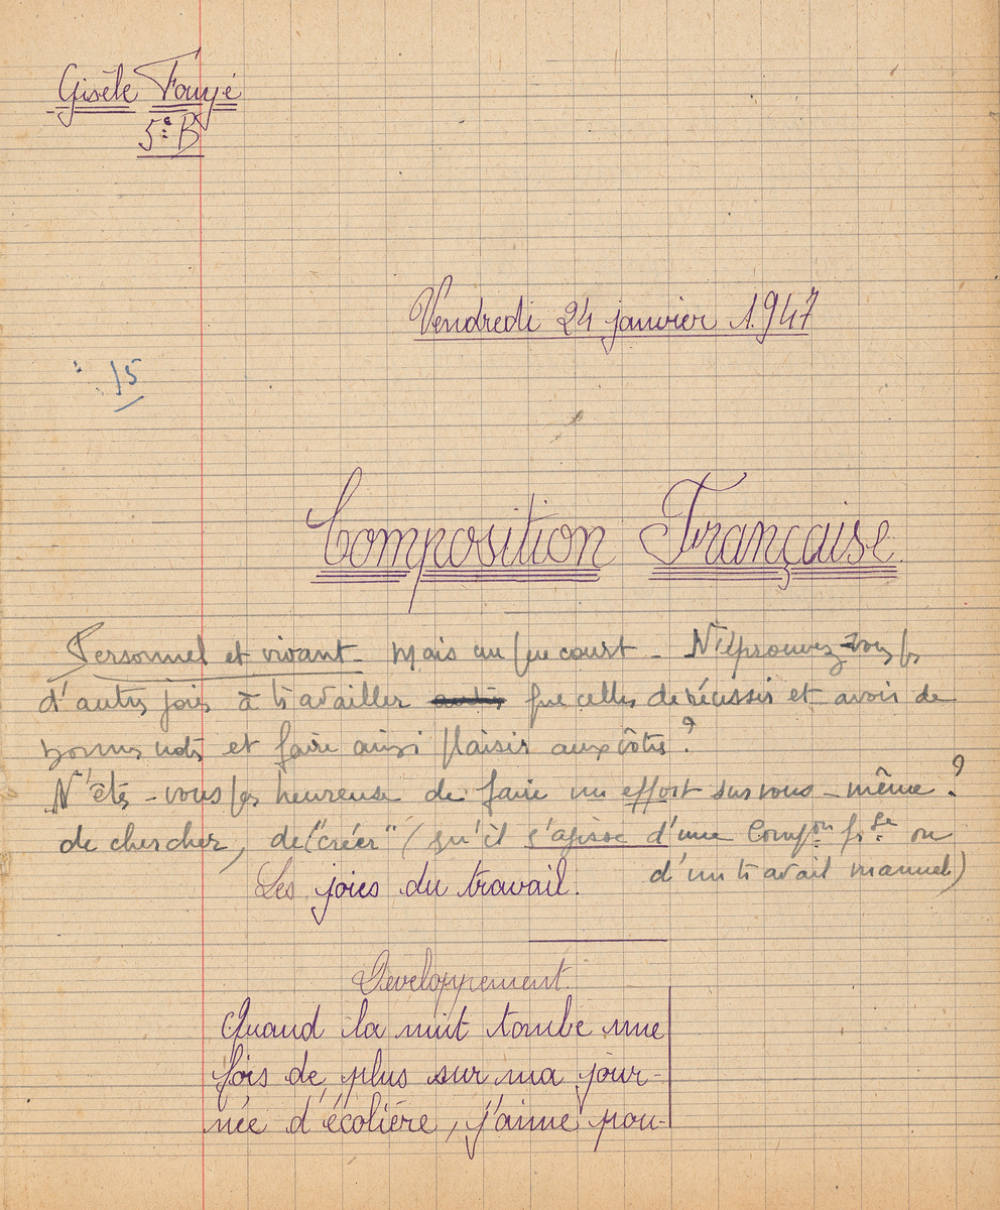 Gisèle Fouyé
5e B
Vendredi 24 janvier 1947
: 15
Composition Française
Personnel et vivant - Mais un peu court - N'éprouvez-vous pas
d'autres joies à travailler autres que celles de réussir et avoir de
bonnes notes et faire ainsi plaisir aux vôtres ?
N'êtes-vous pas heureuse de faire un effort sur vous-même ?
de chercher, de "créer" (qu'il s'agisse d'une Compon fse ou
d'un travail manuel)
Les joies du travail.
Développement.
Quand la nuit tombe une
fois de plus sur ma jour-
née d'écolière, j'aime pou-